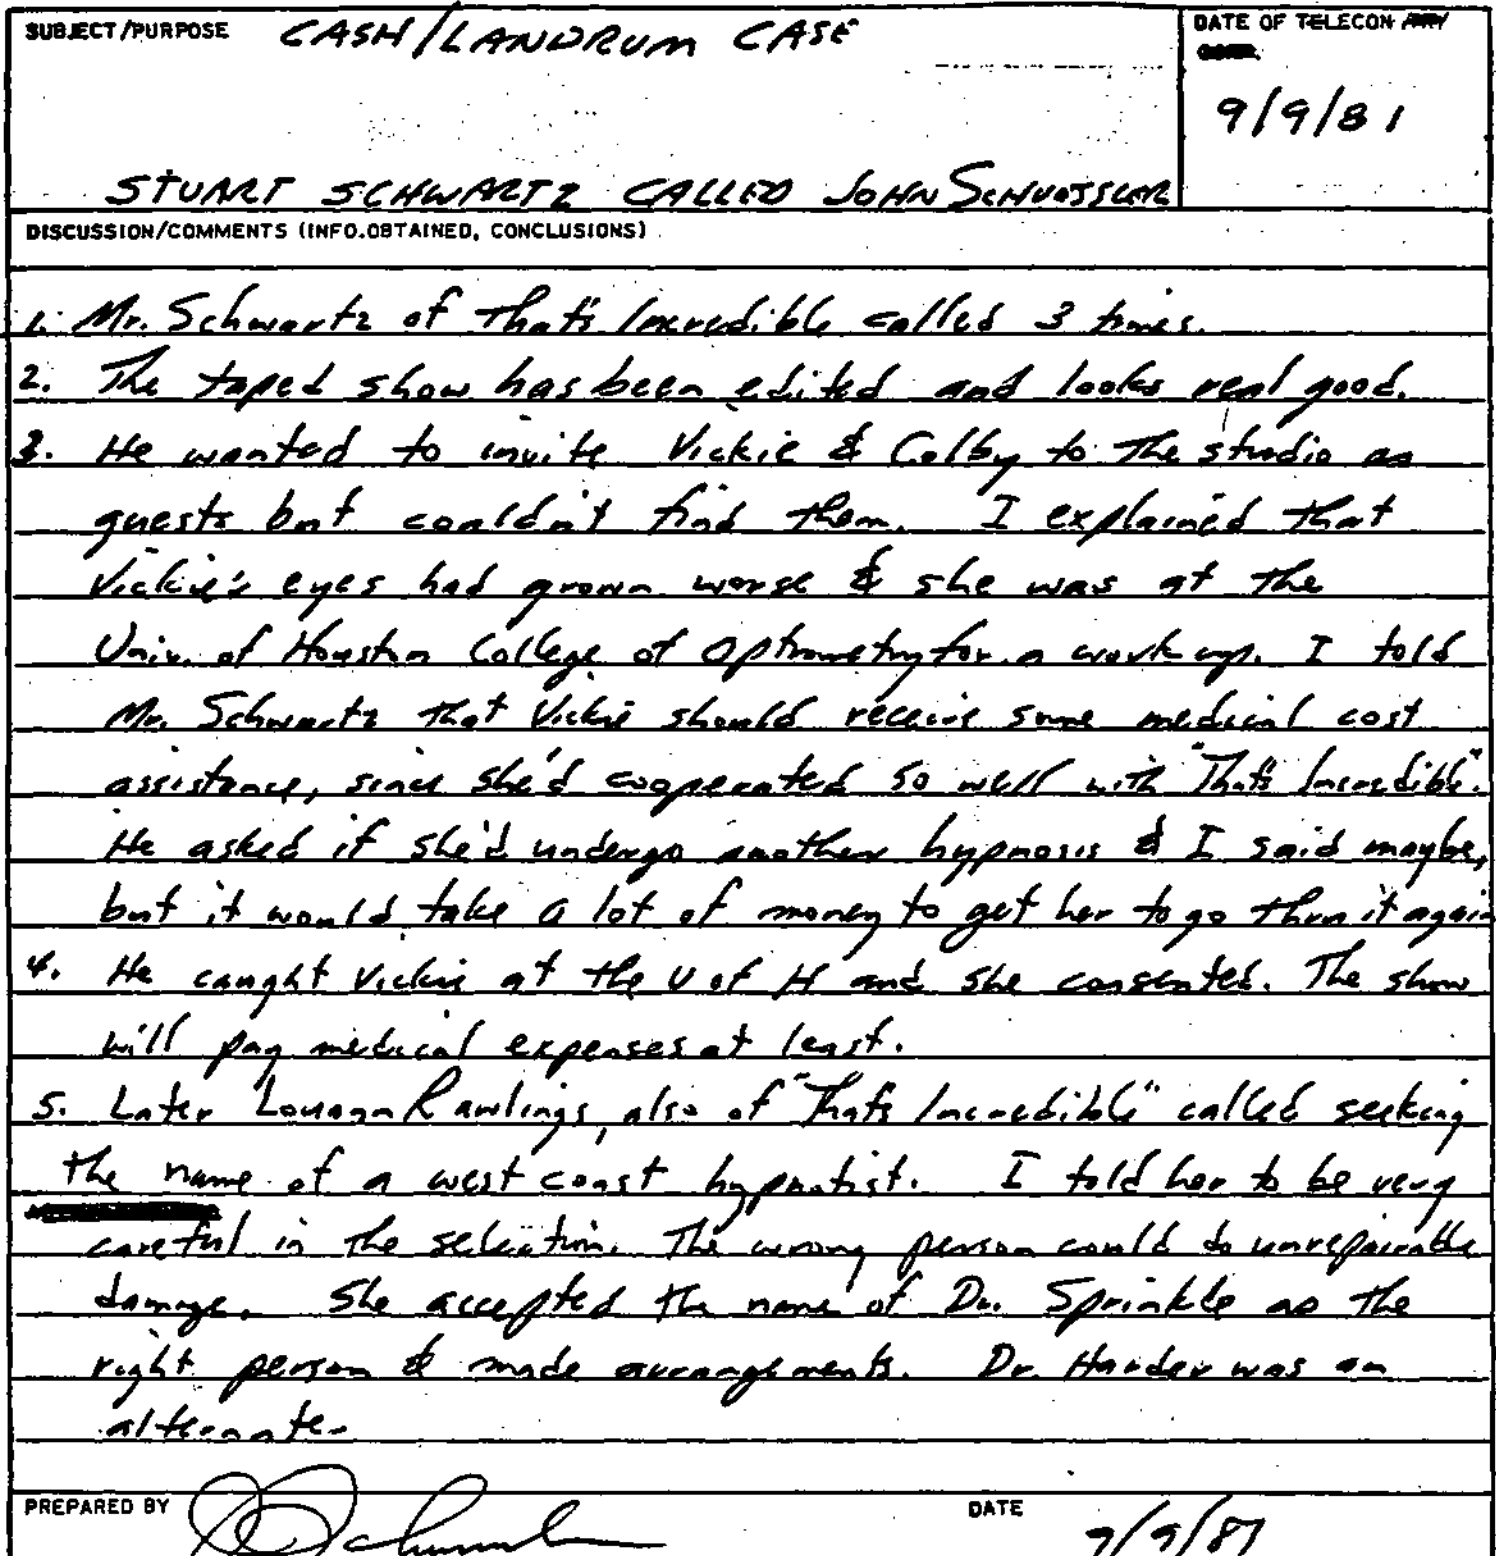 SUBJECT/PURPOSE CASH/LANDRUM CASE
DATE OF TELECON
9/9/81
STUART SCHWARTZ CALLED JOHN SCHUESSLER
DISCUSSION/COMMENTS (INFO.OBTAINED, CONCLUSIONS)
1. Mr. Schwartz of That's Incredible called 3 times.
2. The taped show has been edited and looks real good.
3. He wanted to invite Vickie & Colby to the studio as
guests but couldn't find them. I explained that
Vickie's eyes had grown worse & she was at the
Univ. of Houston College of Optometry for a work up. I told
Mr. Schwartz that Vickie should receive some medical cost
assistance, since she'd cooperated so well with "That's Incredible".
He asked if she'd undergo another hypnosis & I said maybe,
but it would take a lot of money to get her to go thru it again
4. He caught Vickie at the U of H and she consented. The show
will pay medical expenses at least.
5. Later Louann Rawlings, also of "That's Incredible" called seeking
the name of a west coast hypnotist. I told her to be very
careful in the selection. The wrong person could do unrepairable
damage. She accepted the name of Dr. Sprinkle as the
right person & made arrangements. Dr. Harder was an
alternate.
PREPARED BY
DATE 9/9/81